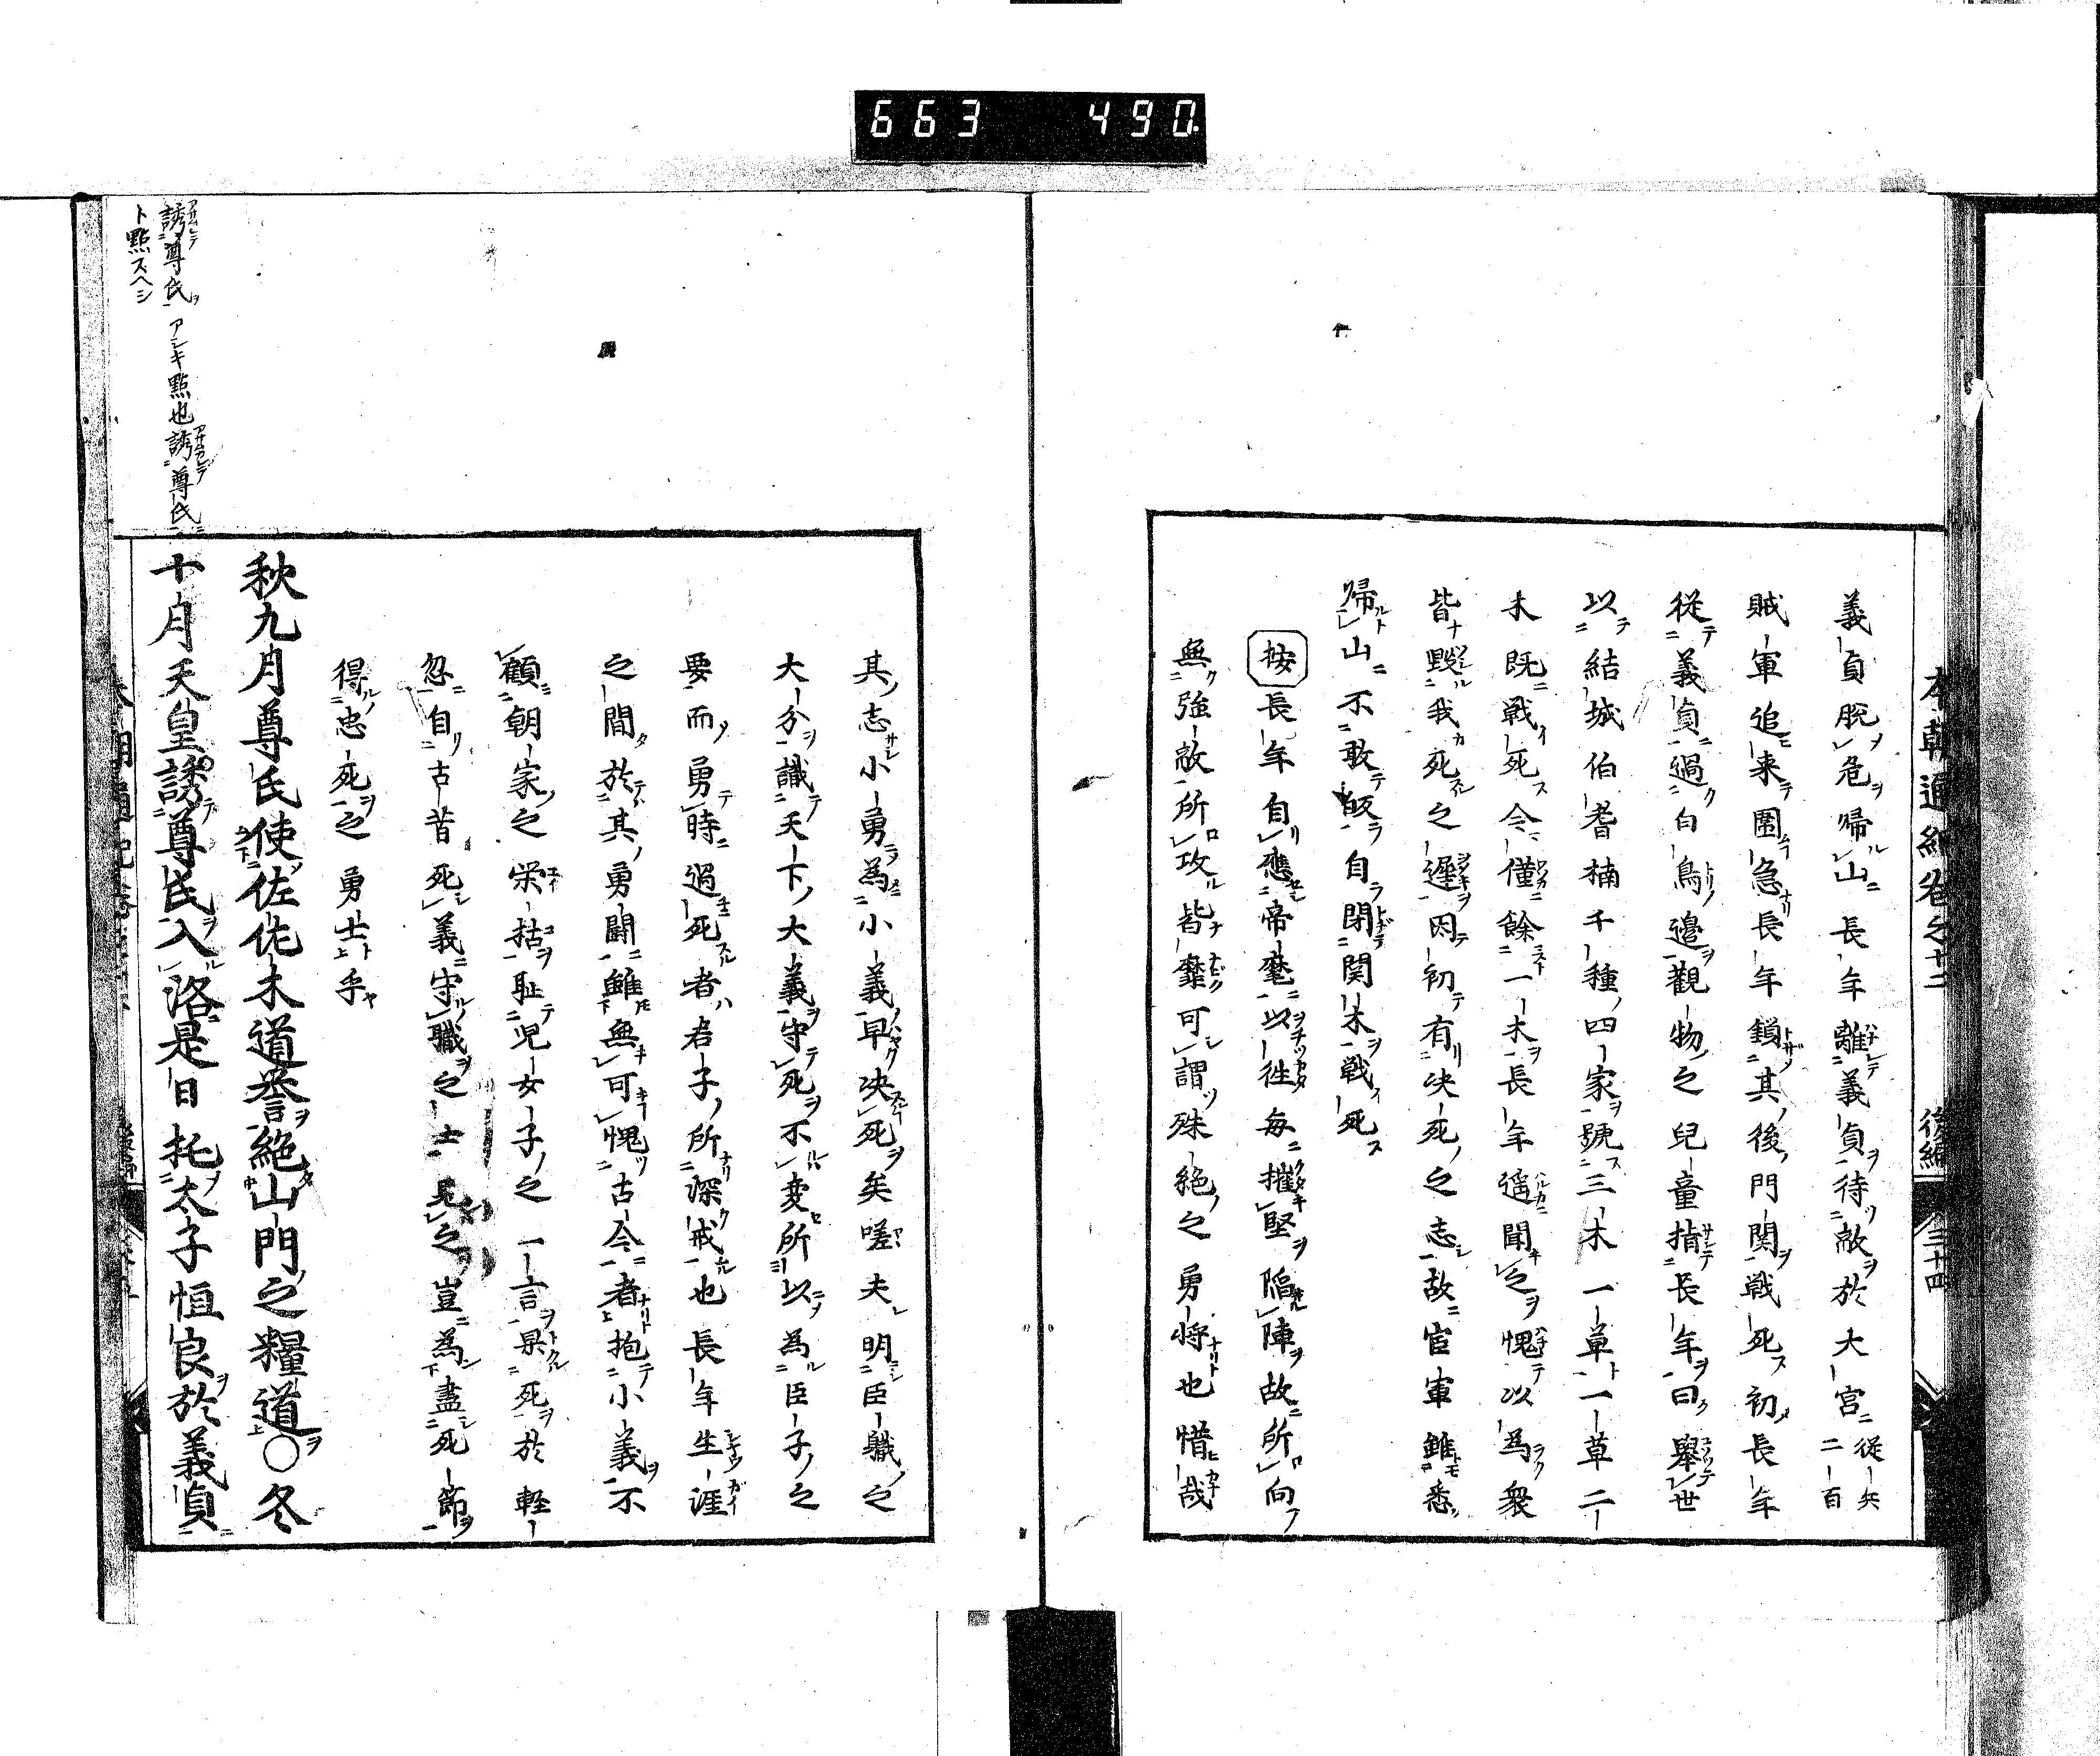 663 490
本朝通紀卷之十二 後編 三十四
義貞脱危歸山長年離義貞待敵於大宮従兵二百
賊軍追来圍急長年鎖其後門関戦死初長年
従義貞過白鳥邉觀物之兒童指長年曰舉世
以結城伯耆楠千種四家號三木一草一草二
木既戦死今僅餘一木長年遥聞之愧以為衆
皆嘿我死之遲因初有决死之志故官軍雖悉
歸山不敢皈自閉関木戦死
按長年自應帝麾以徃毎摧堅陥陣故所向
無強敵所攻皆靡可謂殊絶之勇将也惜哉
其志小勇為小義早决死矣嗟夫明臣軄之
大分識天下大義守死不変所以為臣子之
要而勇時過死者君子所深戒也長年生涯
之間於其勇闘雖無可愧古今者抱小義不
顧朝家之栄枯耻児女子之一言果死於軽
忽自古昔死義守職之士見之豈為盡死節
得忠死之勇士乎
秋九月尊氏使佐佐木道誉絶山門之糧道○冬
十月天皇誘尊氏入洛是日托太子恒良於義貞
誘尊氏ヲ アシキ點也誘尊氏ニ
ト點スヘシ